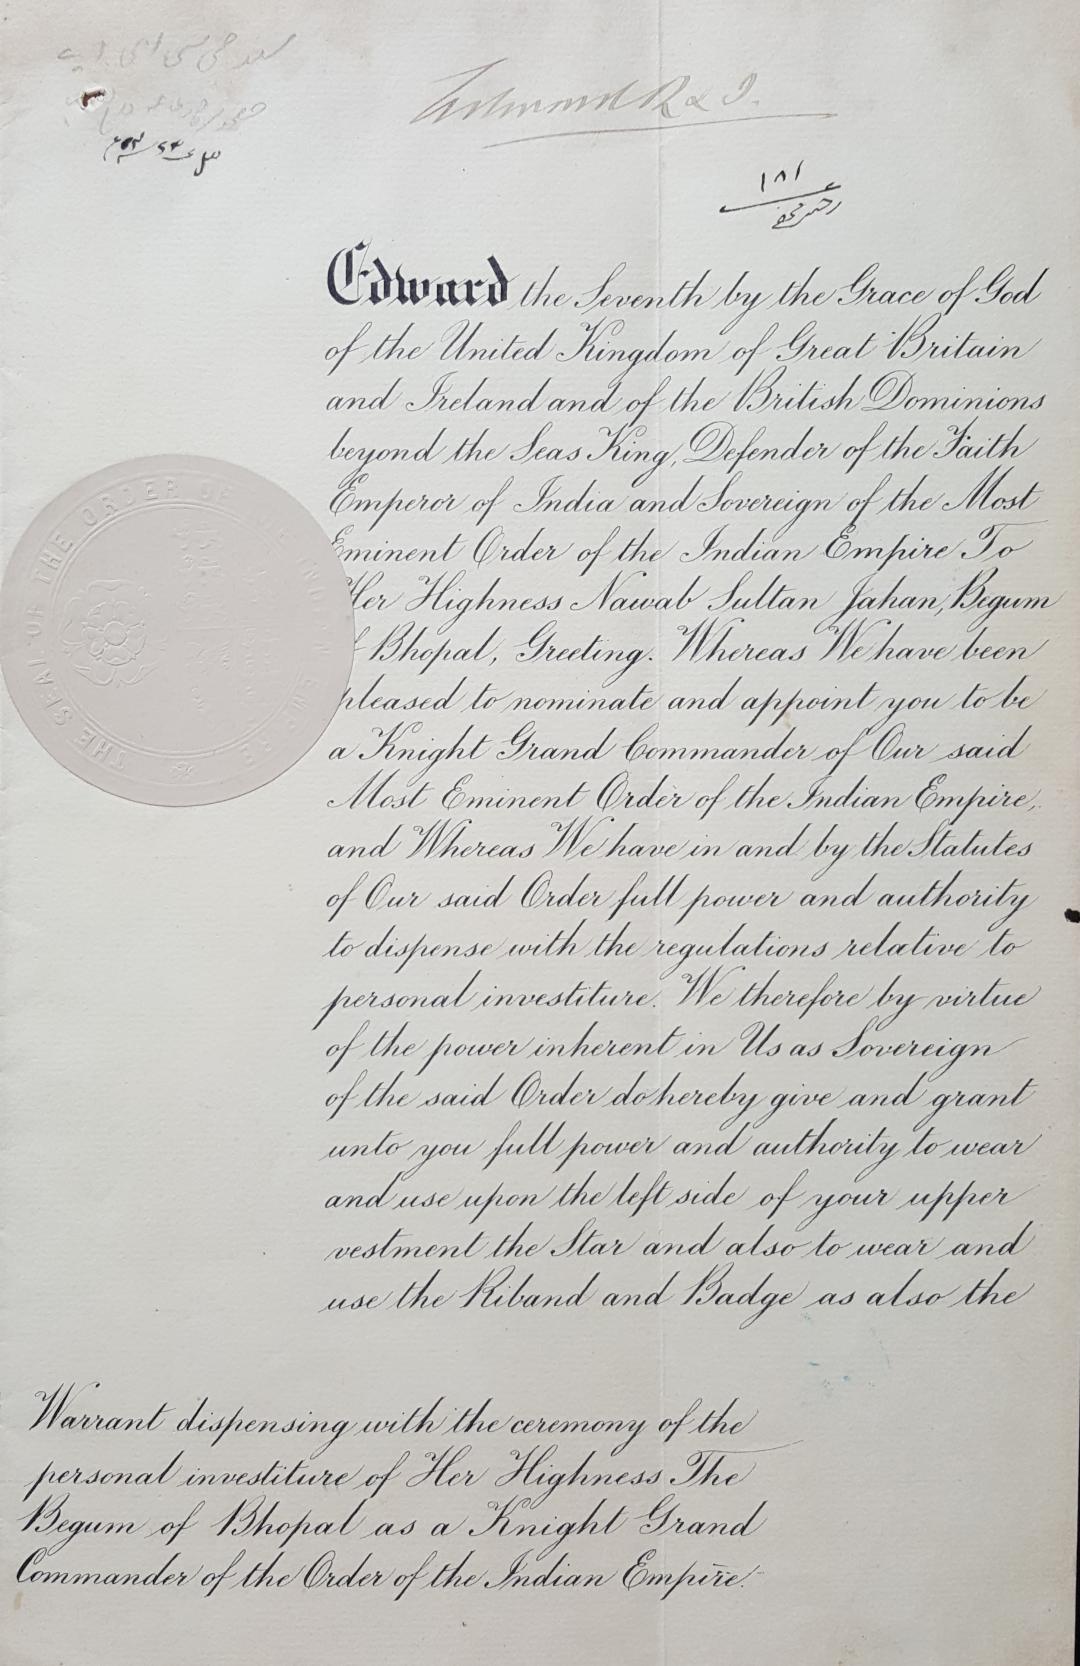 Edward R & I.
۱۸۱
Edward the Seventh by the Grace of God
of the United Kingdom of Great Britain
and Ireland and of the British Dominions
beyond the Seas King, Defender of the Faith
Emperor of India and Sovereign of the Most
Eminent Order of the Indian Empire To
Her Highness Nawab Sultan Jahan, Begum
Bhopal, Greeting. Whereas We have been
pleased to nominate and appoint you to be
a Knight Grand Commander of Our said
Most Eminent Order of the Indian Empire,
and Whereas We have in and by the Statutes
of Our said Order full power and authority
to dispense with the regulations relative to
personal investiture. We therefore by virtue
of the power inherent in Us as Sovereign
of the said Order do hereby give and grant
unto you full power and authority to wear
and use upon the left side of your upper
vestment the Star and also to wear and
use the Riband and Badge as also the
THE SEAL OF THE ORDER OF
Warrant dispensing with the ceremony of the
personal investiture of Her Highness The
Begum of Bhopal as a Knight Grand
Commander of the Order of the Indian Empire.